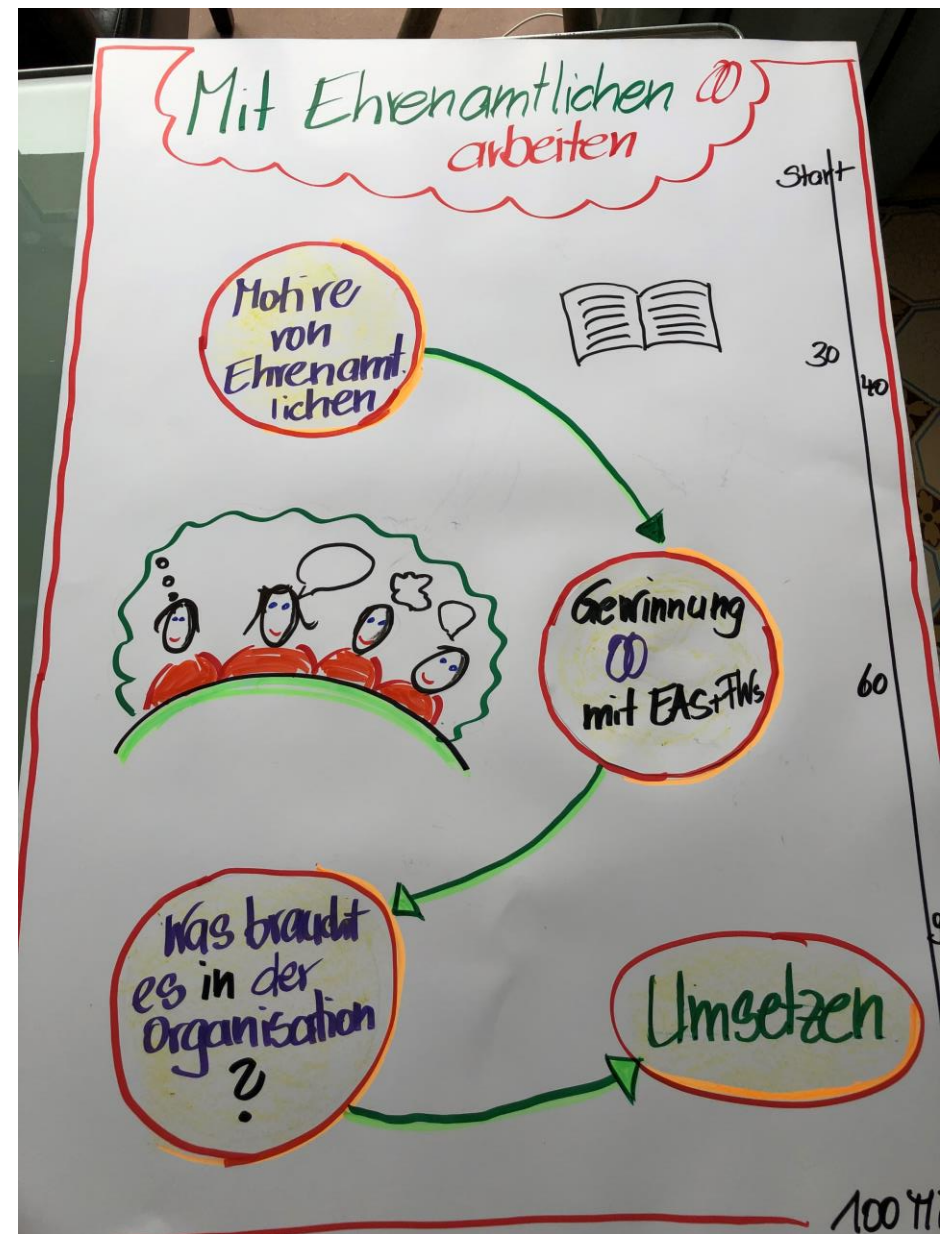 Mit Ehrenamtlichen
arbeiten
Start
Motive
von
Ehrenamt.
lichen
30
40
Gewinnung
mit EAS+FWs
60
Was braucht
es in der
Organisation
?
Umsetzen
100 Mi